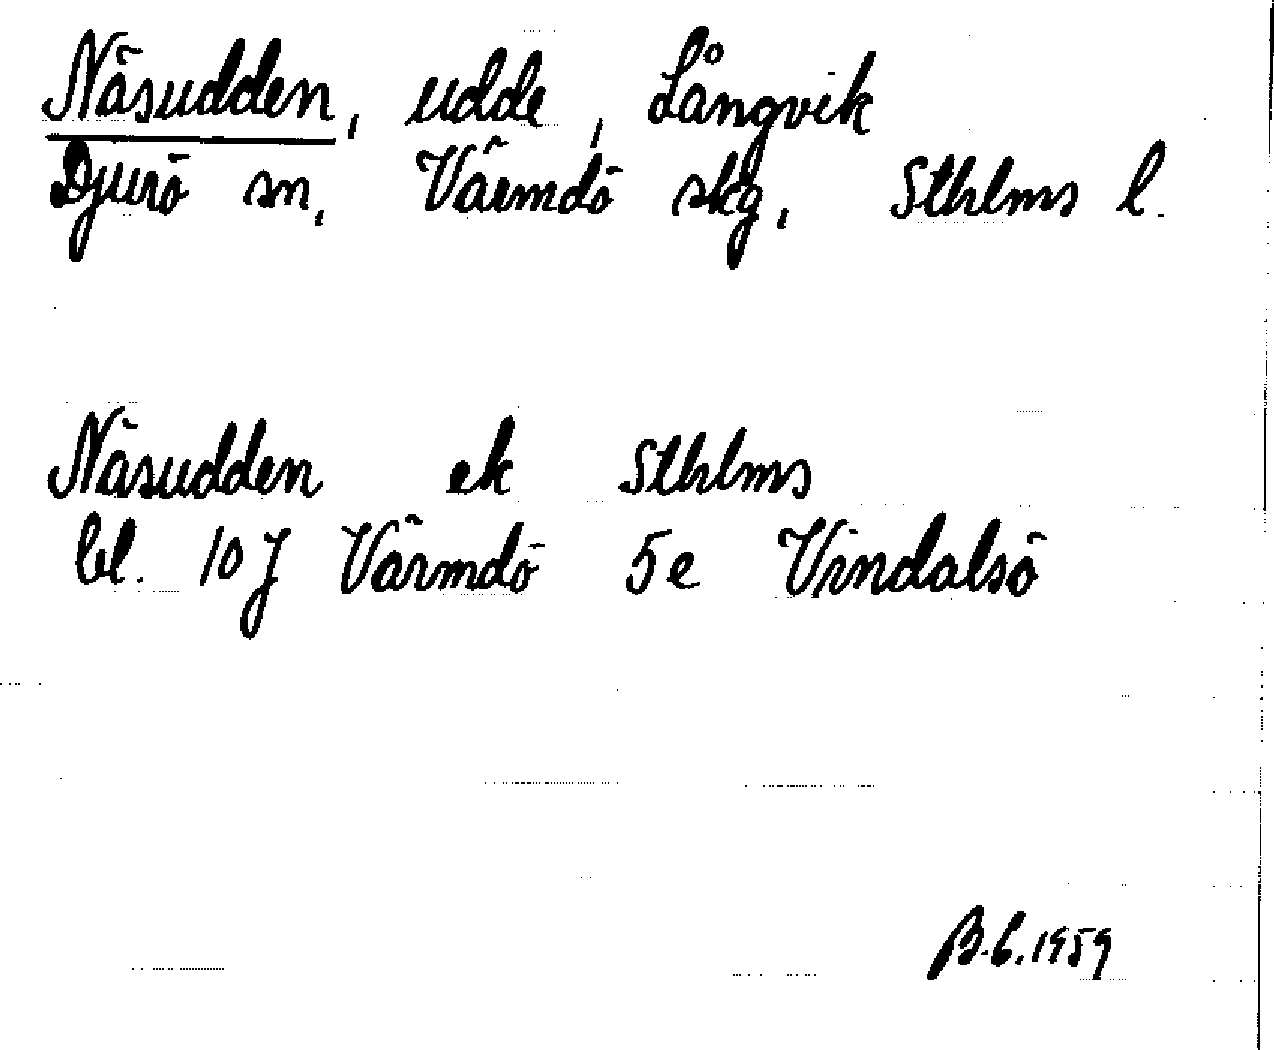 Näsudden, udde, Långvik
Djurö sn, Värmdö skg, Sthlms l.
Näsudden ek Sthlms
bl. 10 J Värmdö 5e Vindalsö
B.C. 1959